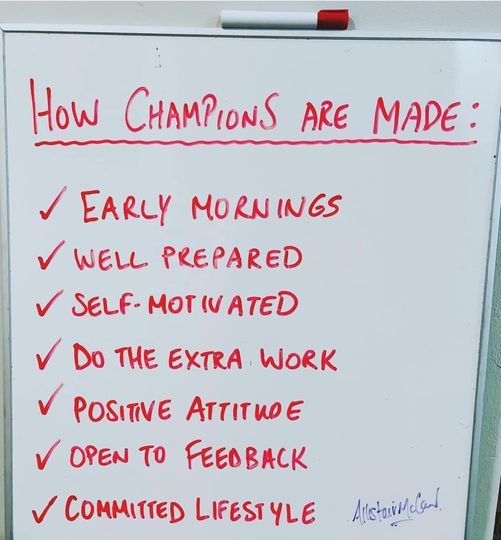 HOW CHAMPIONS ARE MADE:
✓ EARLY MORNINGS
✓ WELL PREPARED
✓ SELF-MOTIVATED
✓ DO THE EXTRA WORK
✓ POSITIVE ATTITUDE
✓ OPEN TO FEEDBACK
✓ COMMITTED LIFESTYLE